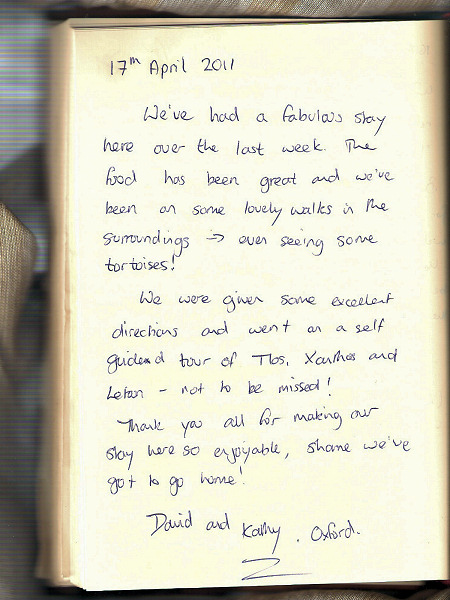 17th April 2011
We've had a fabulous stay
here over the last week. The
food has been great and we've
been on some lovely walks in the
surroundings → even seeing some
tortoises!
We were given some excellent
directions and went on a self
guided tour of Tlos, Xanthos and
Letoon - not to be missed!
Thank you all for making our
stay here so enjoyable, shame we've
got to go home!
David and Kathy. Oxford.